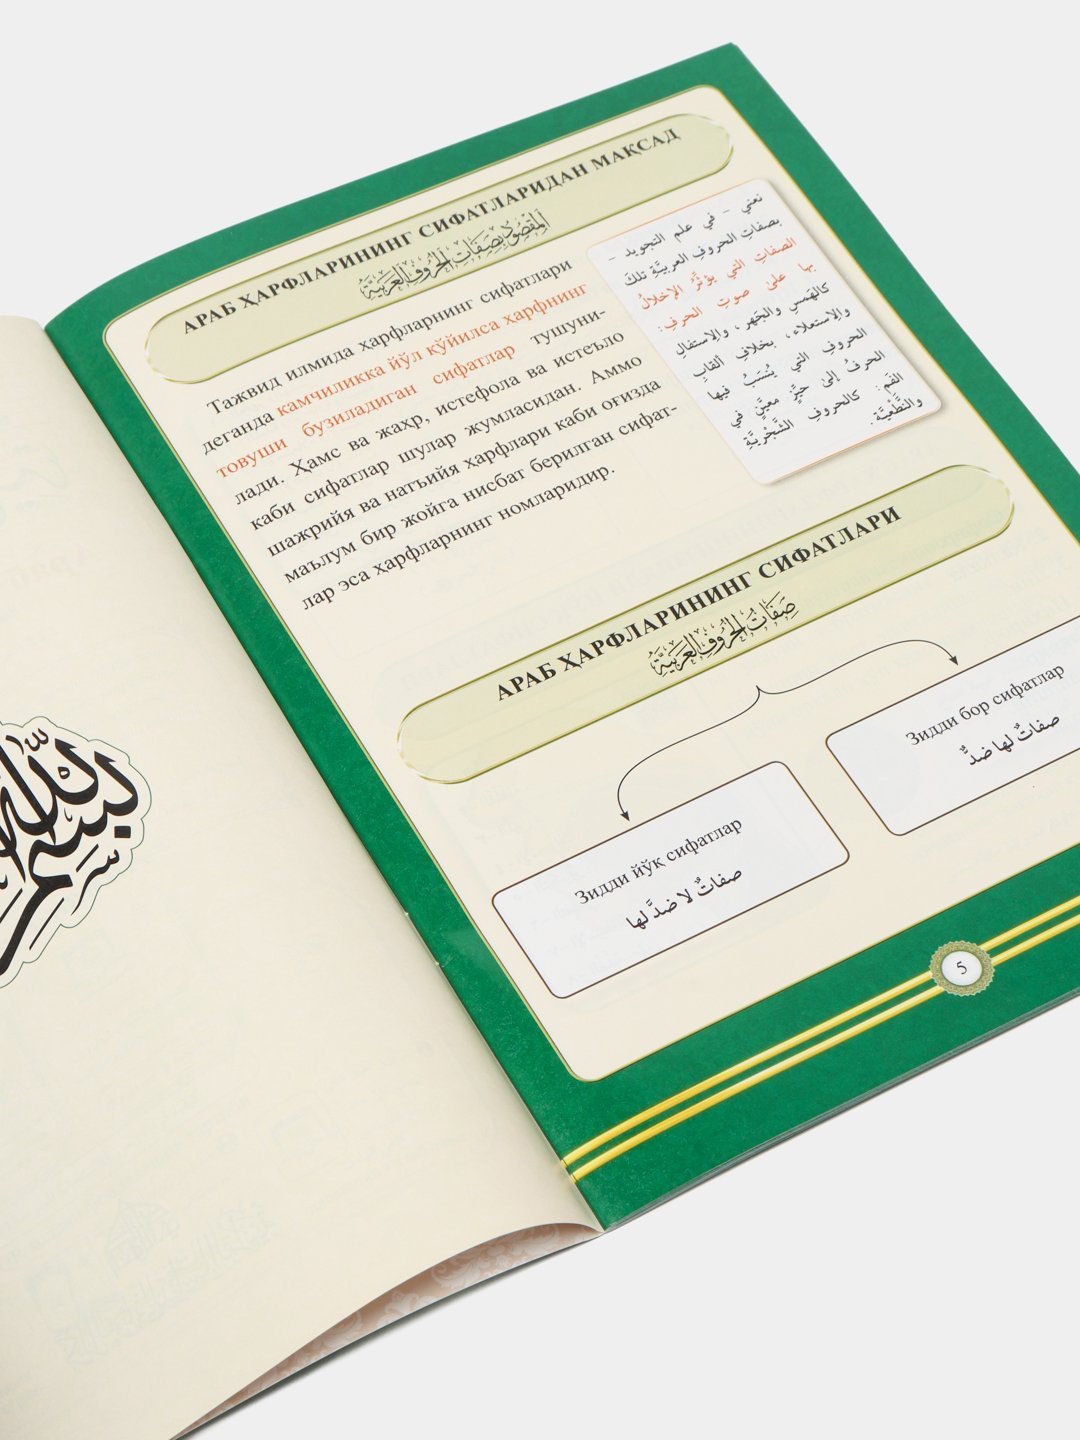 АРАБ ҲАРФЛАРИНИНГ СИФАТЛАРИДАН МАҚСАД
اَلْمَقْصُودُ بِصِفَاتِ الْحُرُوفِ الْعَرَبِيَّةِ
Тажвид илмида харфларнинг сифатлари
деганда камчиликка йўл қўйилса харфнинг
товуши бузиладиган сифатлар тушуни-
лади. Ҳамс ва жаҳр, истефола ва истеъло
каби сифатлар шулар жумласидан. Аммо
шажрийя ва натъийя харфлари каби оғизда
маълум бир жойга нисбат берилган сифат-
лар эса харфларнинг номларидир.
نعني - في علم التجويد -
بصفاتِ الحروفِ العربيَّةِ تلكَ
الصفاتِ التي يؤثّرُ الإخلالُ
بها على صوتِ الحرفِ:
كالهَمسِ والجَهرِ، والاستفالِ
والاستعلاء، بخلافِ ألقابِ
الحروفِ التي يُنسَبُ فيها
الحرفُ إلىٰ حيِّزٍ معيَّنٍ في
الفَمِ: كالحروفِ الشَّجْريَّةِ
والنَّطْعيَّة.
АРАБ ҲАРФЛАРИНИНГ СИФАТЛАРИ
صِفَاتُ الْحُرُوفِ الْعَرَبِيَّةِ
Зидди бор сифатлар
صفاتٌ لها ضدٌّ
Зидди йўқ сифатлар
صفاتٌ لا ضدَّ لها
5
بسم الله